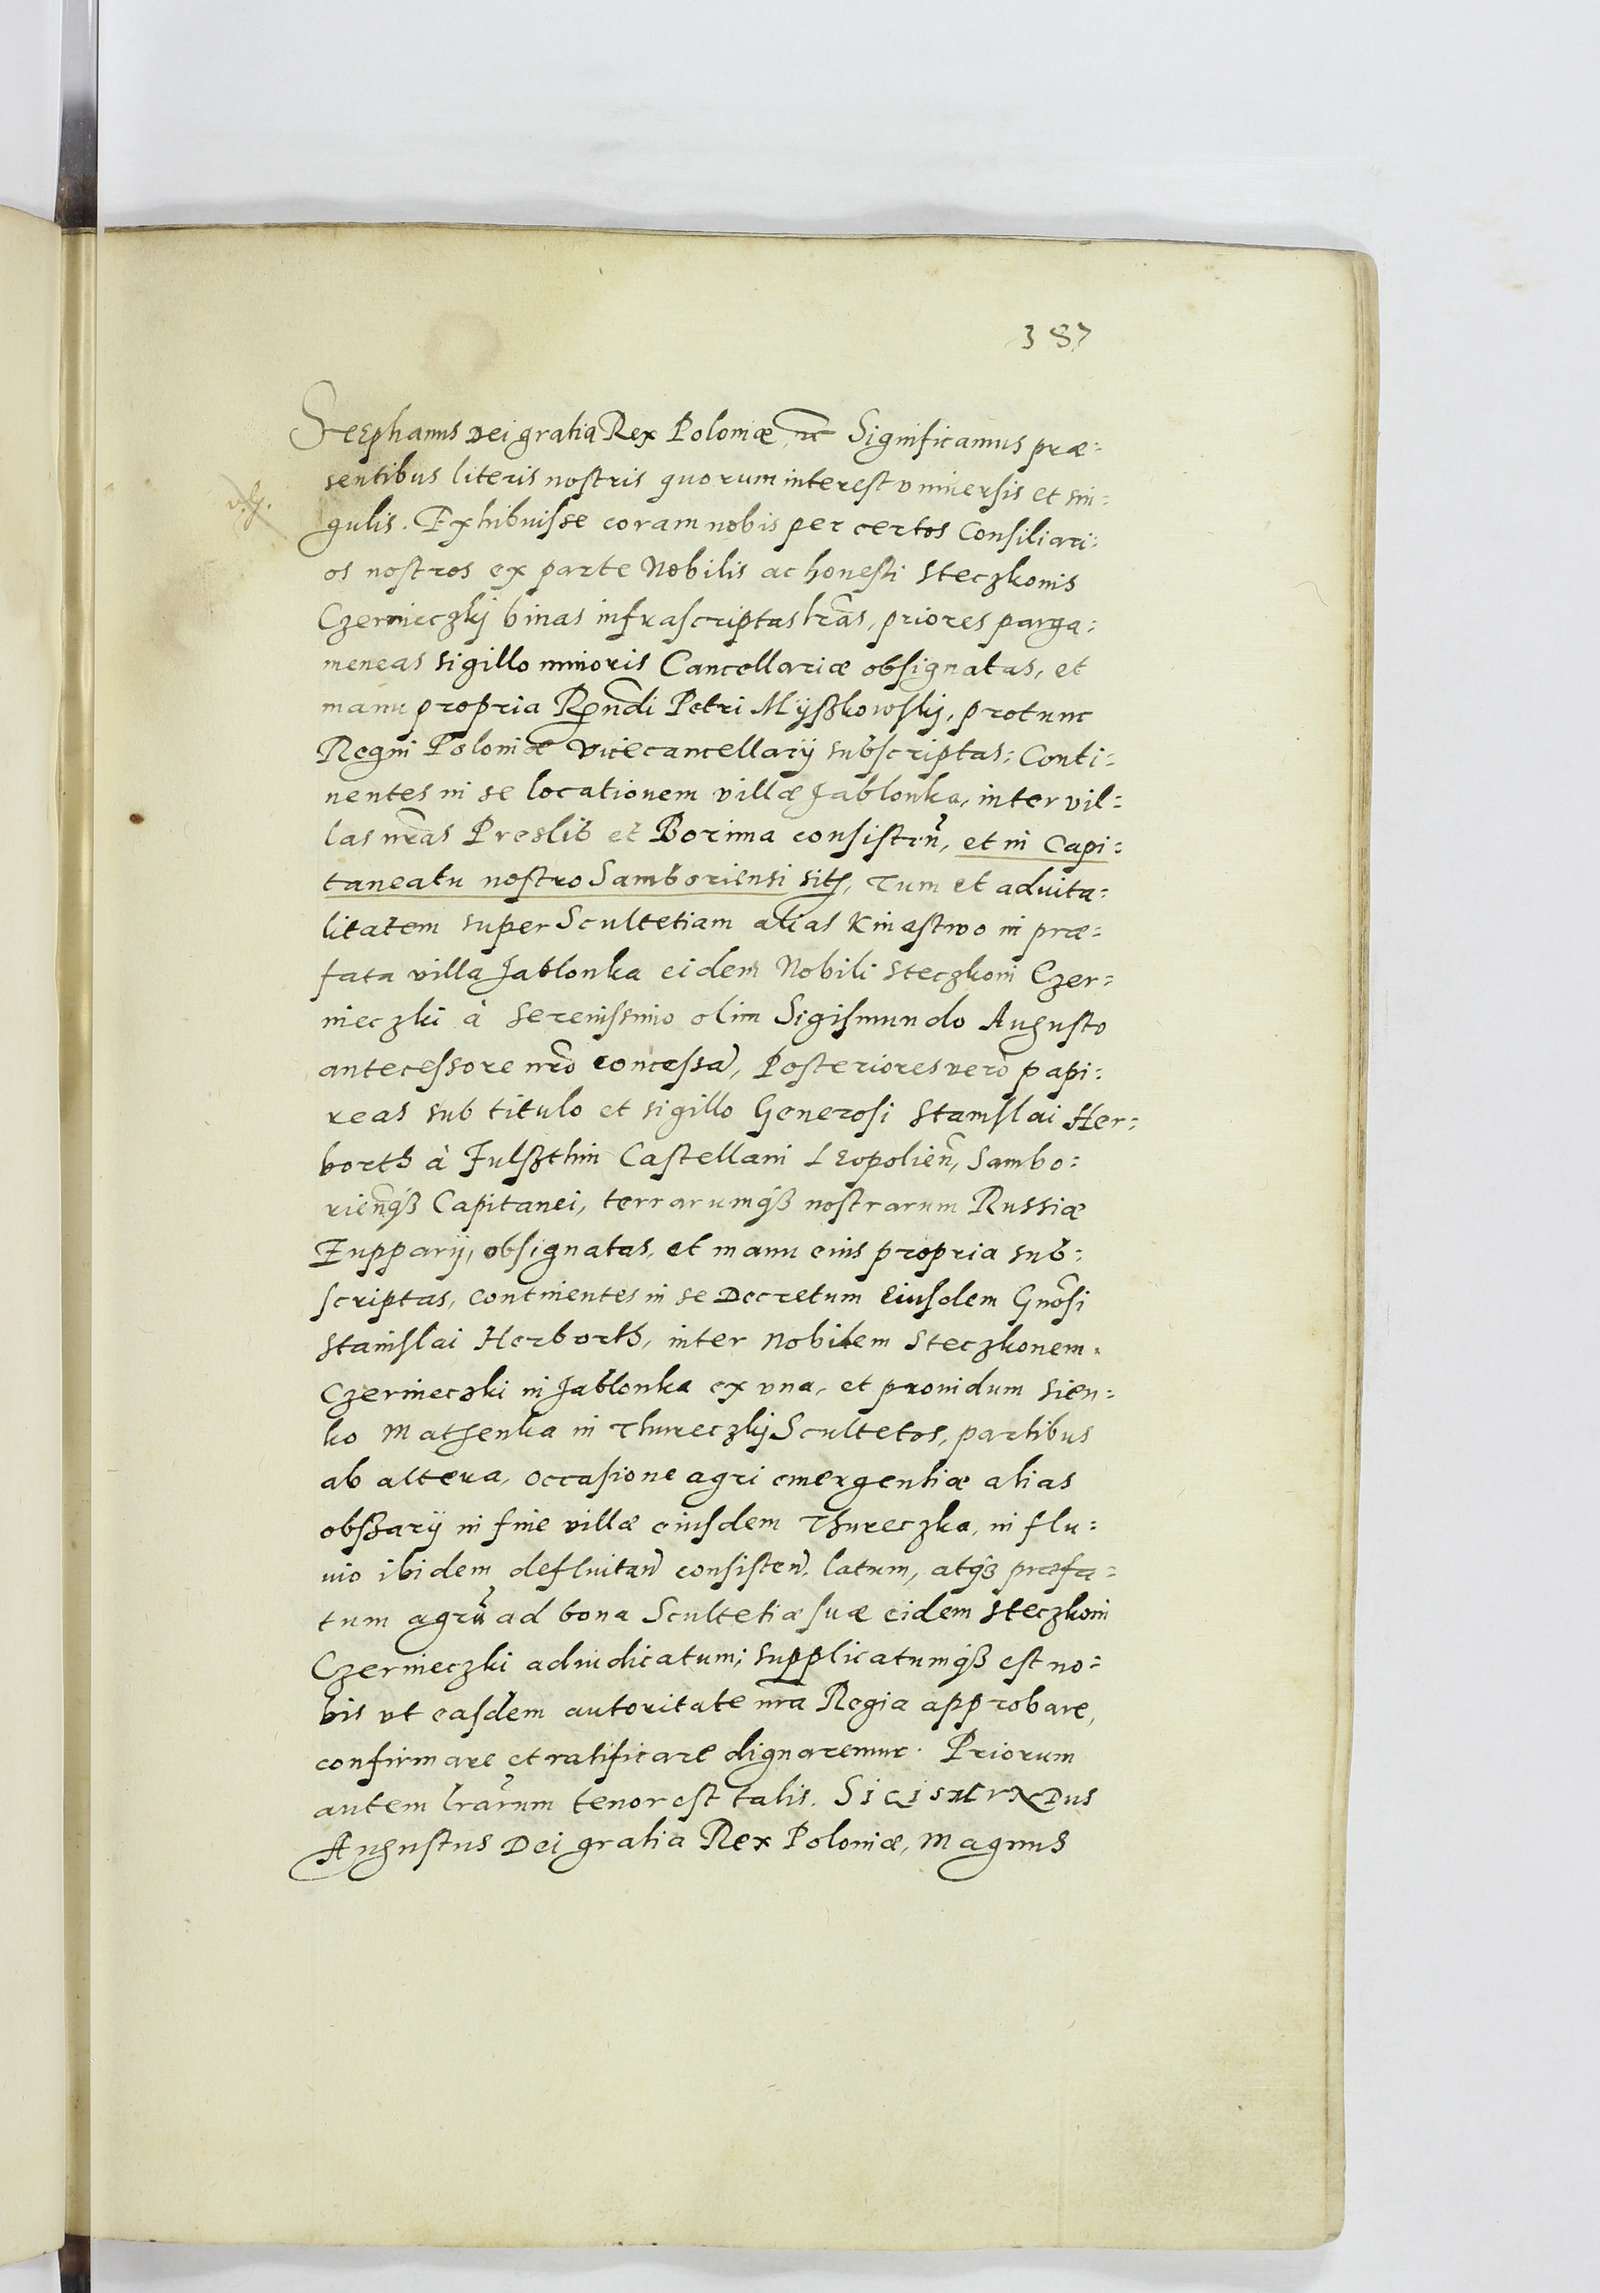 387
Stephanus Dei gratia Rex Poloniæ, etc Significamus præ=
sentibus literis nostris quorum interest vniuersis et sin=
gulis. Exhibuisse coram nobis per certos Consiliari=
os nostros ex parte Nobilis ac honesti Steczkonis
Czernieczkÿ binas infrascriptas lr̃as, priores parga=
meneas sigillo minoris Cancellariæ obsignatas, et
manu propria Rn̄di Petri Mÿszkowskÿ, protunc
Regni Poloniæ Vicecancellarÿ subscriptas; Conti=
nentes in se locationem villæ Jablonka, inter vil=
las nr̃as Preslib et Borinia consisten̄, et in Capi=
taneatu nostro Samboriensi sitæ, Tum et aduita=
litatem super Scultetiam alias Kniastwo in præ=
fata villa Jablonka eidem Nobili Steczkoni Czer=
nieczki à Serenissimo olim Sigismundo Augusto
antecessore nr̃o concessā, Posteriores verò papi=
reas sub titulo et sigillo Generosi Stanislai Her=
borth à Fulszthin Castellani Leopolien̄, Sambo=
rien̄qß Capitanei, terrarumqß nostrarum Russiæ
Zupparÿ, obsignatas, et manu eius propria sub=
scriptas, continentes in se Decretum Eiusdem Gn̄osi
Stanislai Herborth, inter Nobilem Steczkonem
Czernieczki in Jablonka ex vna, et prouidum Sien=
ko Mathenka in Thureczkÿ Scultetos, partibus
ab altera, occasione agri emergentiæ alias
obszarÿ in fine villæ eiusdem Thureczka, in flu=
uio ibidem defluitan̄ consisten̄. latum, atqß præfa=
tum agrū ad bona Scultetiæ suæ eidem Steczkoni
Czernieczki adiudicatum; supplicatumqß est no=
bis vt easdem autoritate nr̃a Regia approbare,
confirmare et ratificare dignaremur. Priorum
autem lr̃arum tenor est talis. SIGISMVNDus
Augustus Dei gratia Rex Poloniæ, Magnus